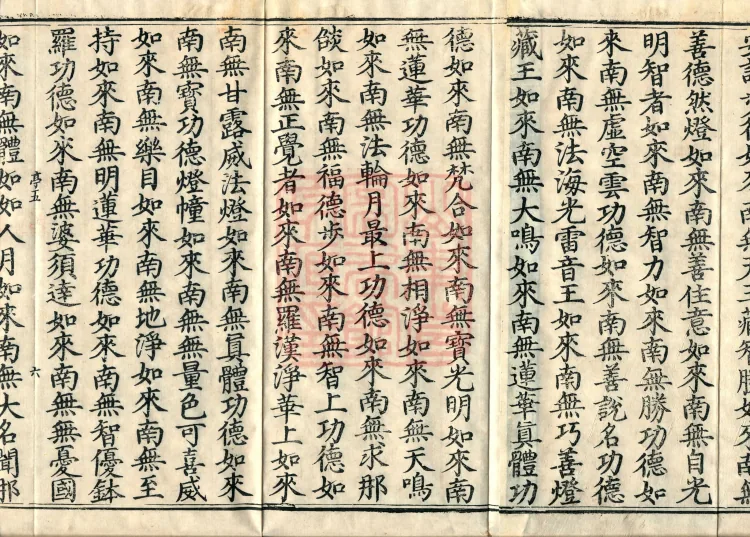 善德然燈如來南無善住意如來南無自光
明智者如來南無智力如來南無勝功德如
來南無虛空雲功德如來南無善說名功德
如來南無法海光雷音王如來南無巧善燈
藏王如來南無大鳴如來南無蓮華真體功
德如來南無梵合如來南無寶光明如來南
無蓮華功德如來南無相淨如來南無天鳴
如來南無法輪月最上功德如來南無求那
燄如來南無福德步如來南無智上功德如
來南無正覺者如來南無羅漢淨華上如來
南無甘露威法燈如來南無真體功德如來
南無寶功德燈幢如來南無無量色可喜威
如來南無樂目如來南無地淨如來南無至
持如來南無明蓮華功德如來南無智優鉢
羅功德如來南無婆須達如來南無無憂國
亭五
六
如來南無體如如人月如來南無大名聞那